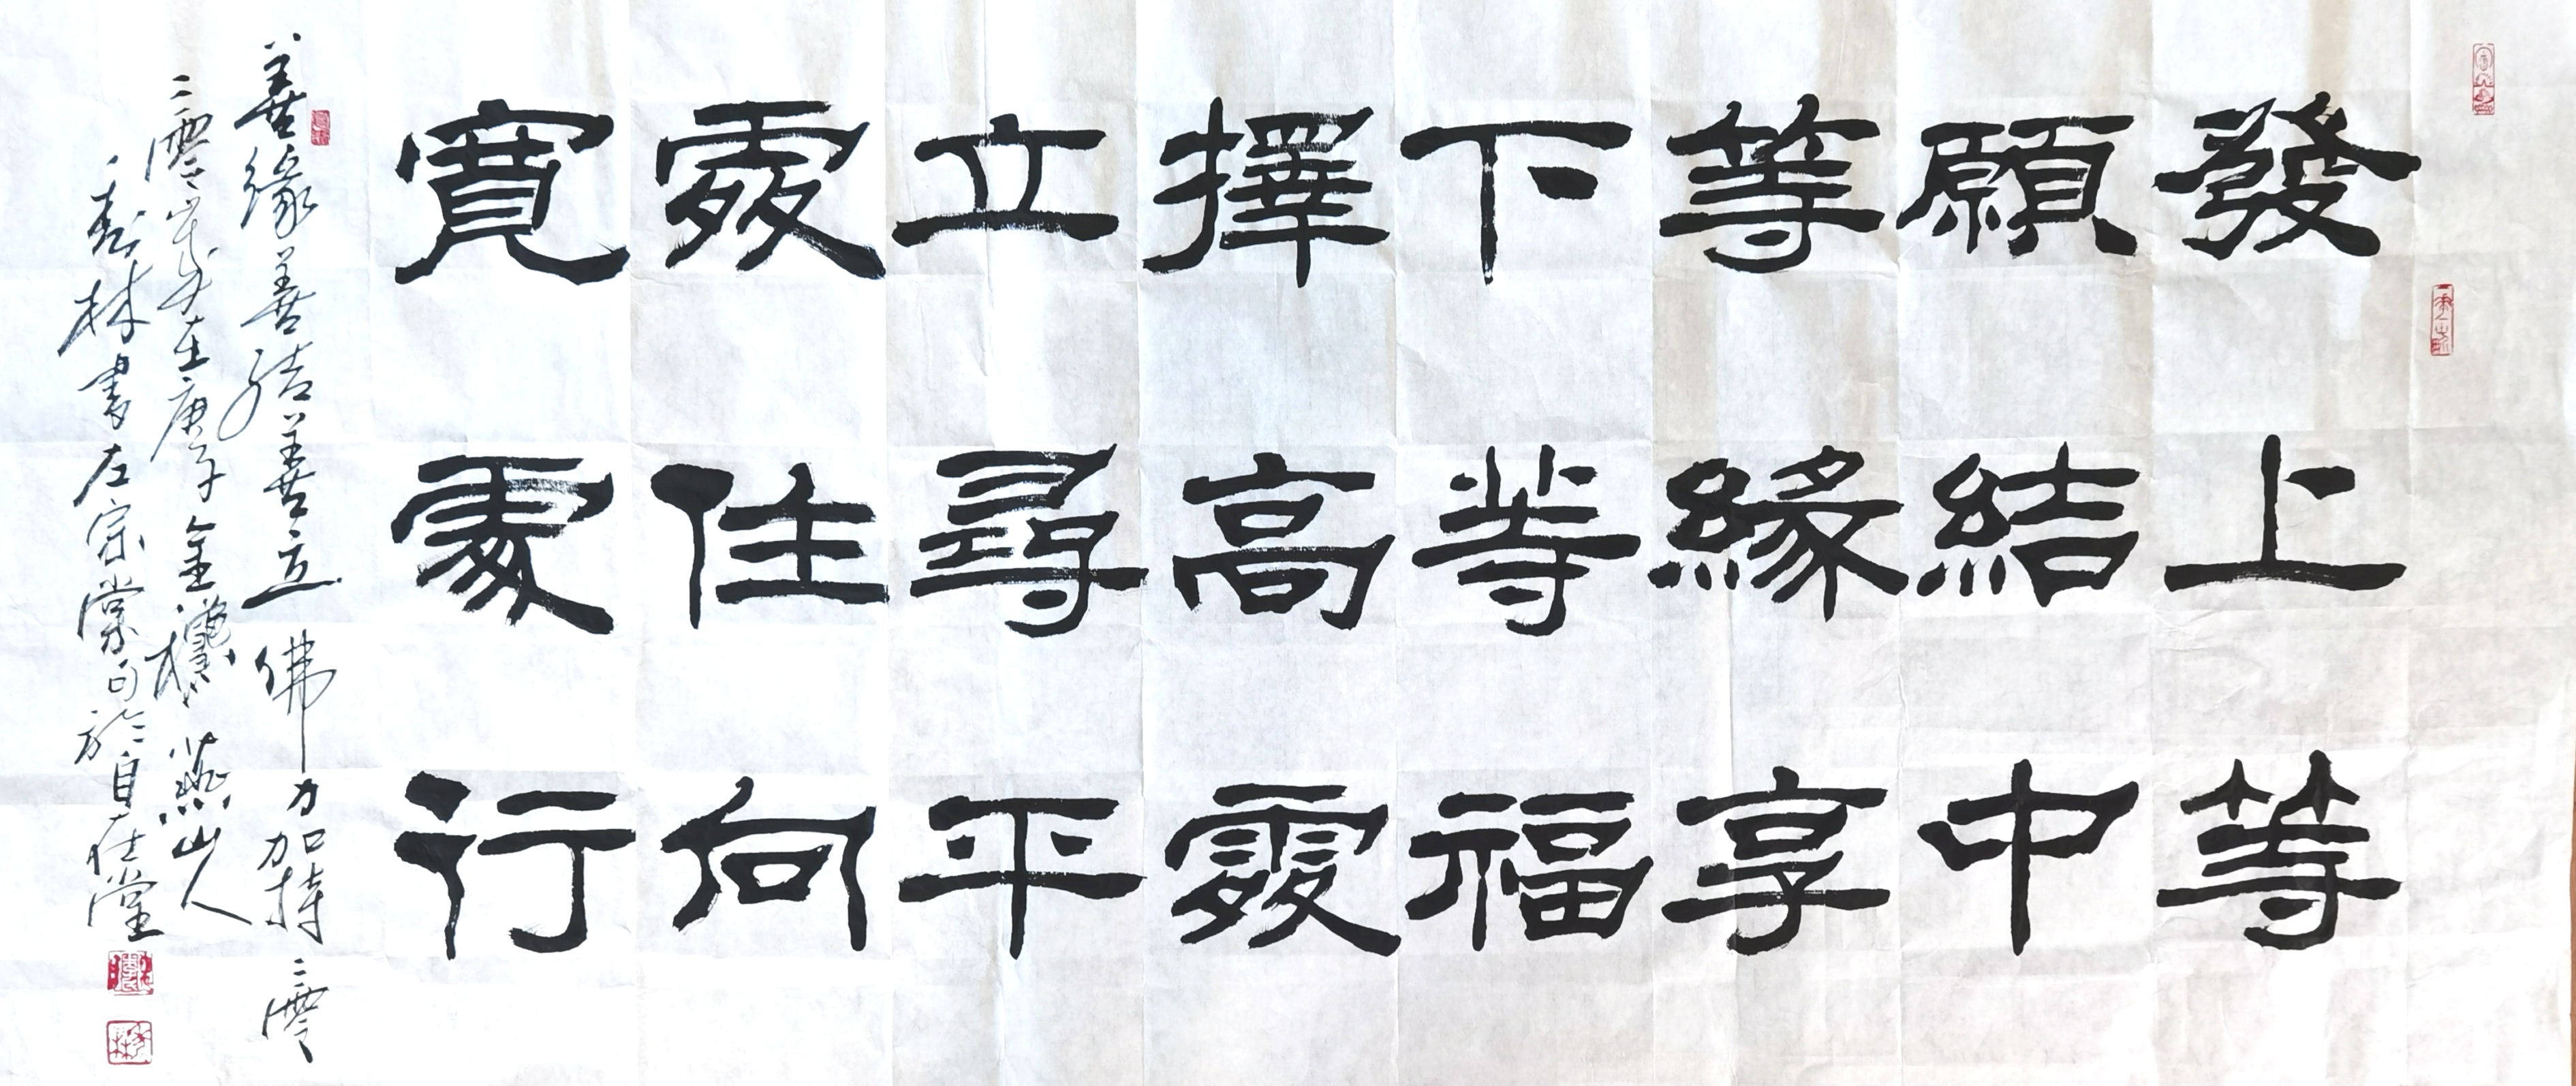 發上等
願結中
等緣享
下等福
擇高處
立尋平
處住向
寬處行
善緣善結善立佛力加持二零
二零歲在庚子金燕山人
林書左宗棠句於自在堂